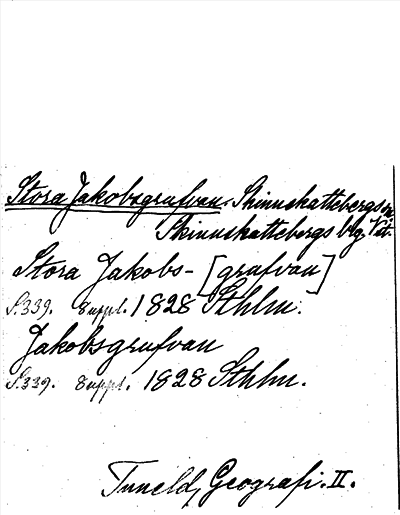 Stora Jakobsgrufvan. Skinnskattebergs sn.
Skinnskattebergs blg. Vst.
Stora Jakobs- [grufvan]
S. 339. Suppl. 1828 Sthlm.
Jakobsgrufvan
S. 339. Suppl. 1828 Sthlm.
Tuneld, Geografi. II.